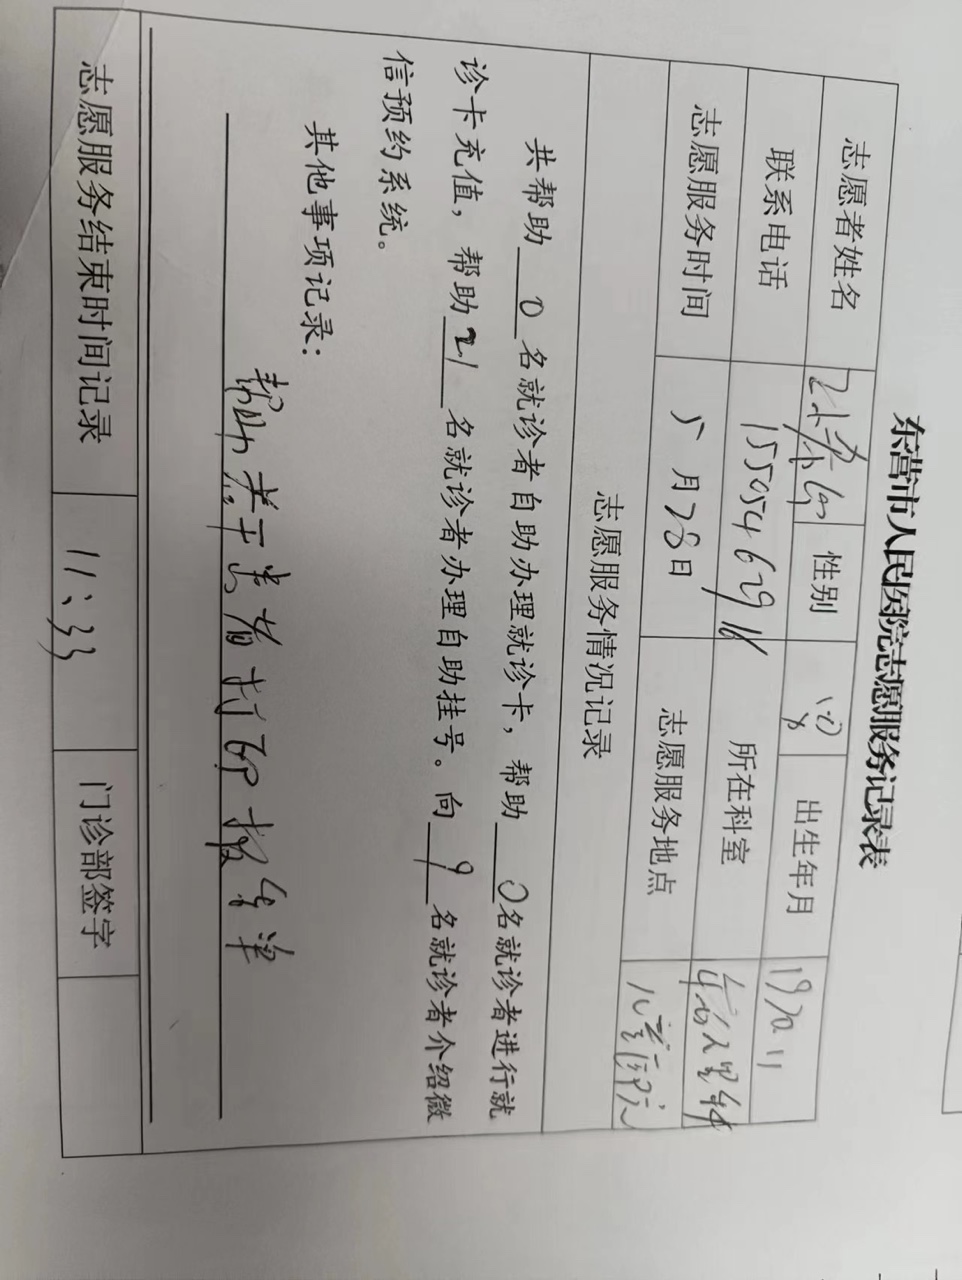 东营市人民医院志愿服务记录表
志愿者姓名 性别 女 出生年月 1970.11
联系电话 15505462916 所在科室
志愿服务时间 5月28日 志愿服务地点 儿童医院
志愿服务情况记录
共帮助 0 名就诊者自助办理就诊卡，帮助 0 名就诊者进行就
诊卡充值，帮助 21 名就诊者办理自助挂号。向 9 名就诊者介绍微
信预约系统。
其他事项记录：
帮助若干患者打印报告单
志愿服务结束时间记录 11:33 门诊部签字